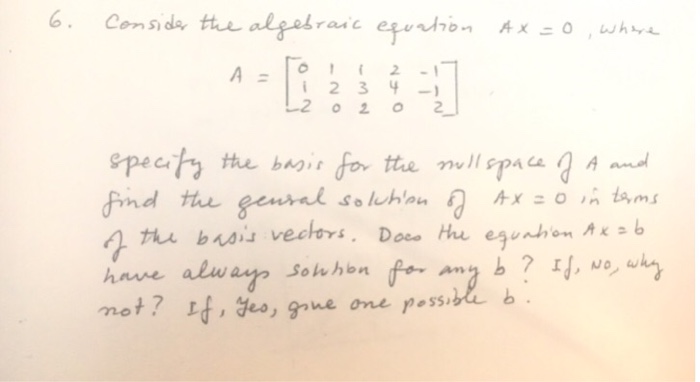 6. Consider the algebraic equation Ax = 0, where
A = [ 0 1 1 2 -1
1 2 3 4 -1
-2 0 2 0 2 ]
specify the basis for the nullspace of A and
find the general solution of Ax = 0 in terms
of the basis vectors. Does the equation Ax = b
have always solution for any b? If, No, why
not? If, Yes, give one possible b.